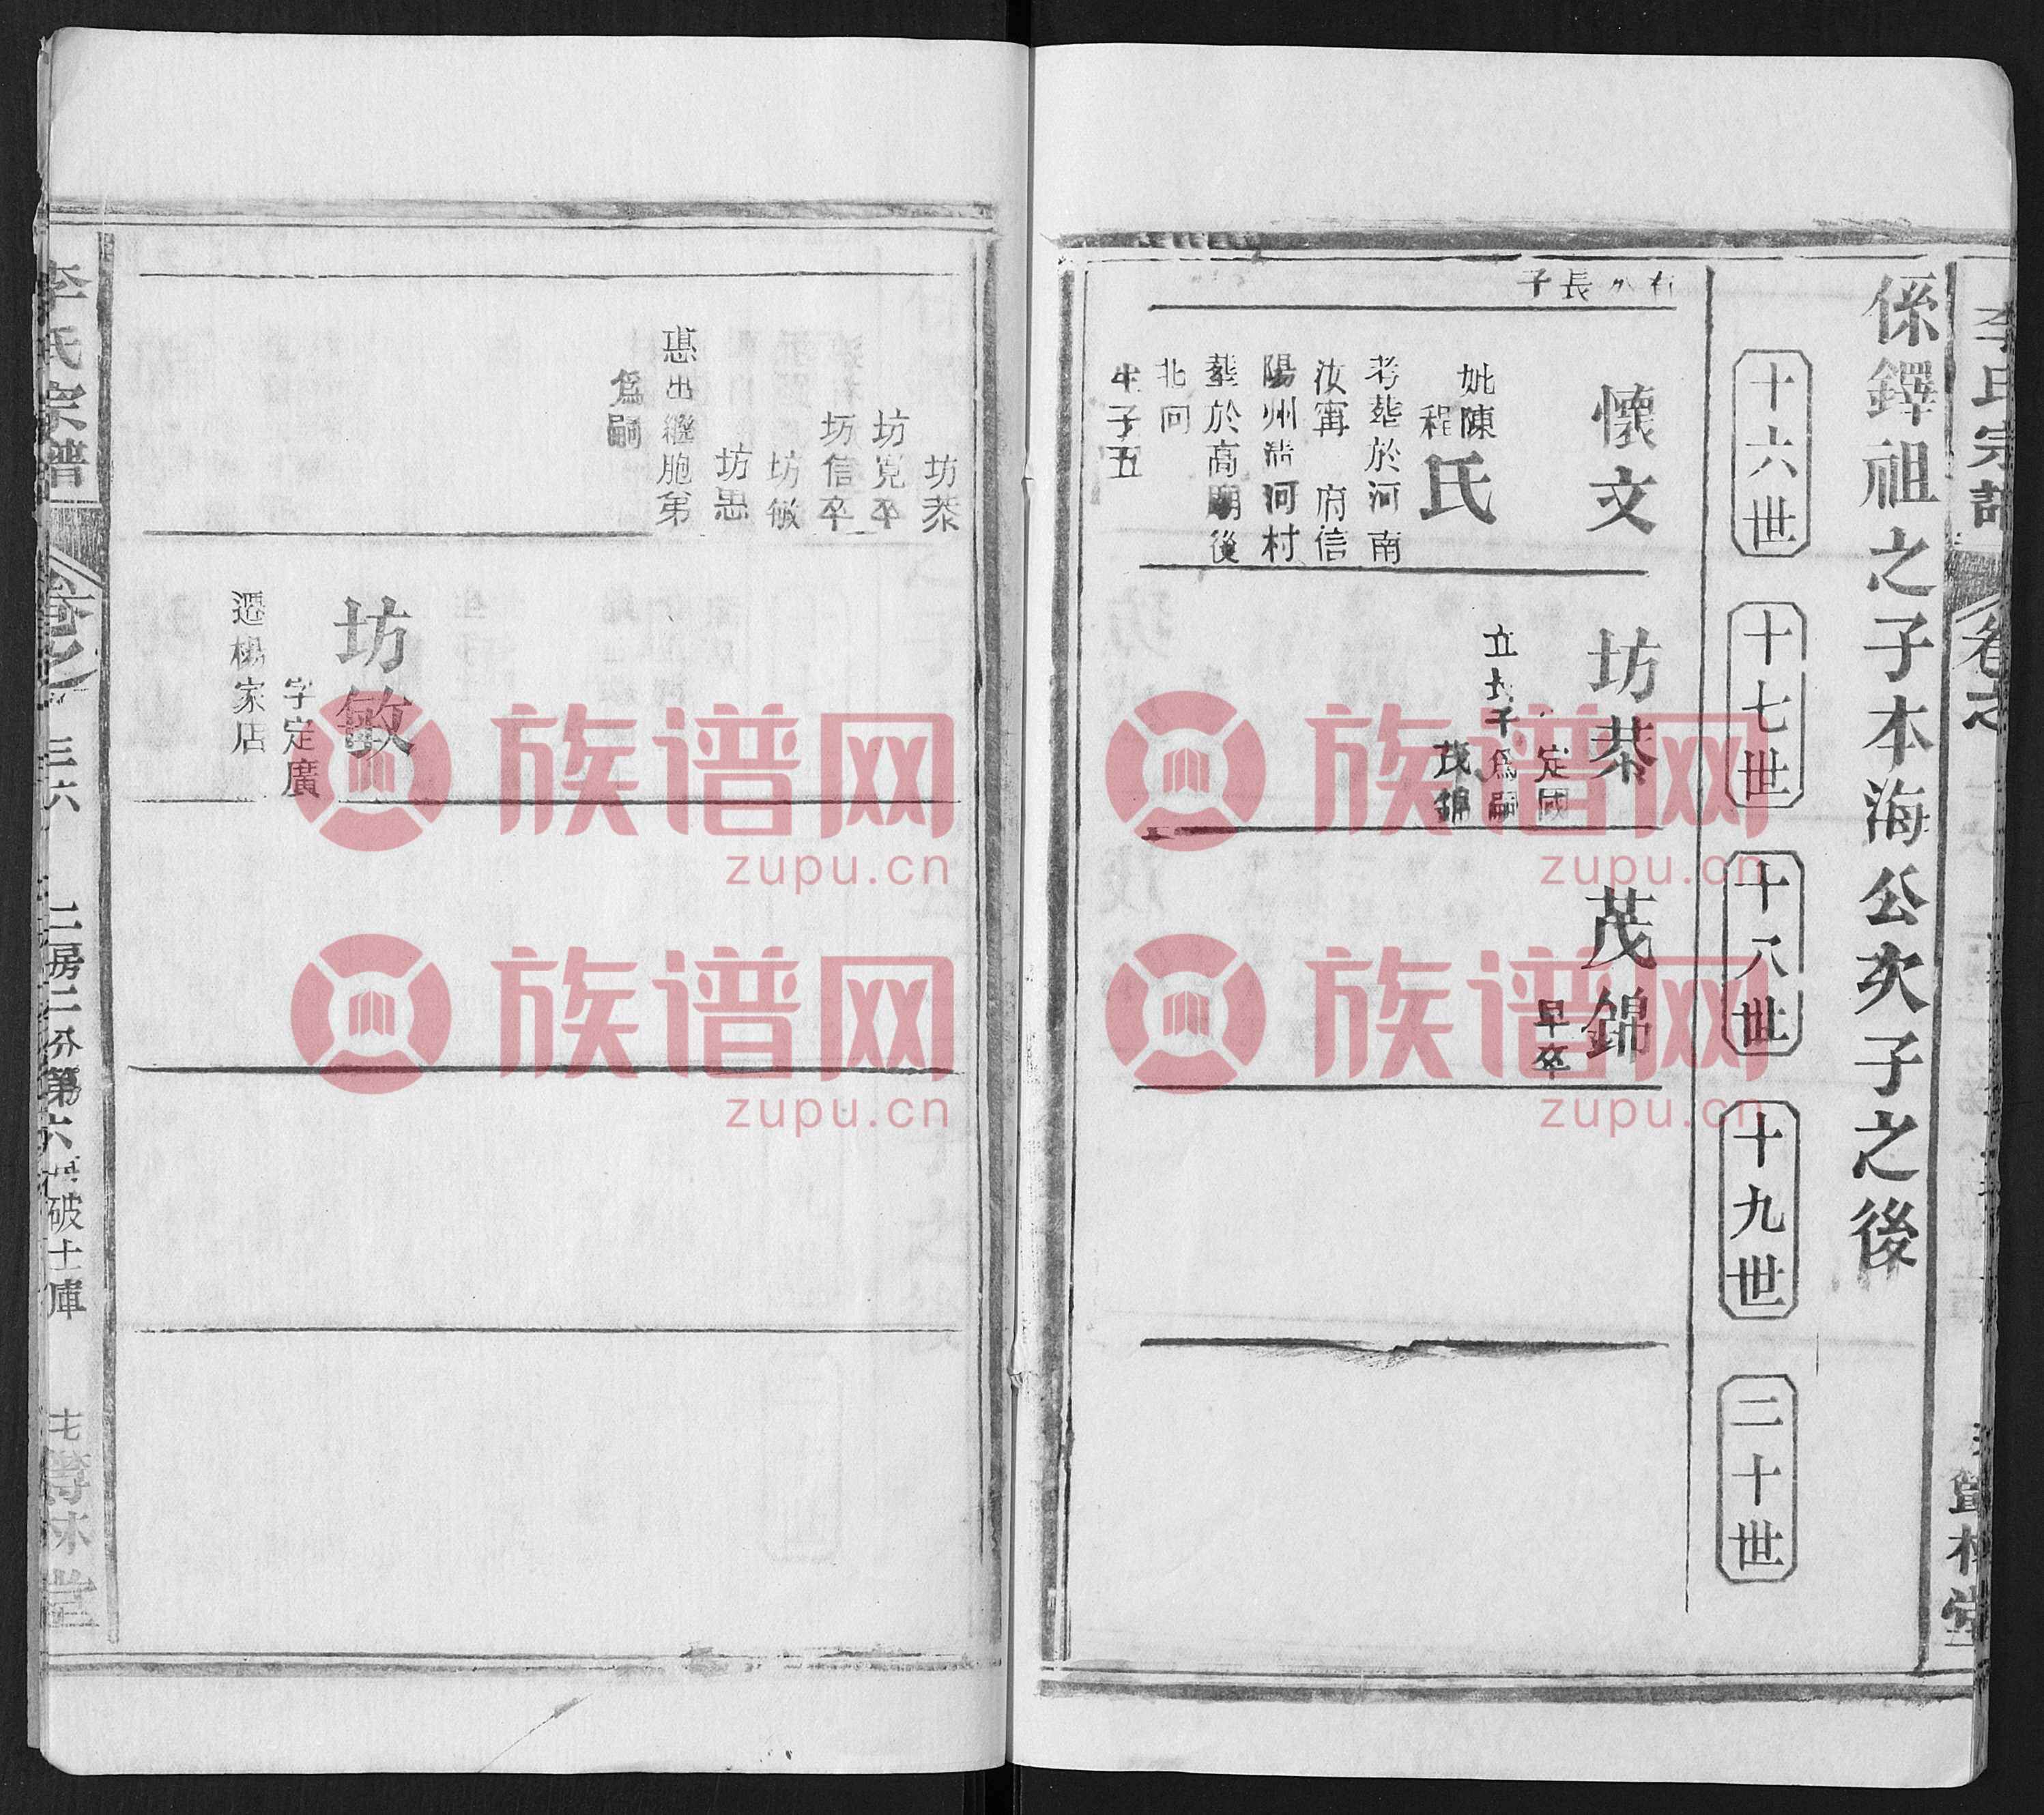 李氏宗譜
係鐸祖之子本海公次子之後
十六世
十七世
十八世
十九世
二十世
長子
懷文
妣陳
程
氏
考塟於河南
汝甯 府信
陽州淸河村
塟於高廟後
北向
生子五
坊恭
定國
立 子爲嗣
茂錦
茂錦
早卒
坊恭
坊寬卒
坊信卒
坊敏
坊思
惠出繼胞弟
爲嗣
坊敏
字定廣
遷楊家店
李氏宗譜
卷之
三六
二房二分第六 破土庫
堂
族谱网
zupu.cn
族谱网
zupu.cn
族谱网
zupu.cn
族谱网
zupu.cn